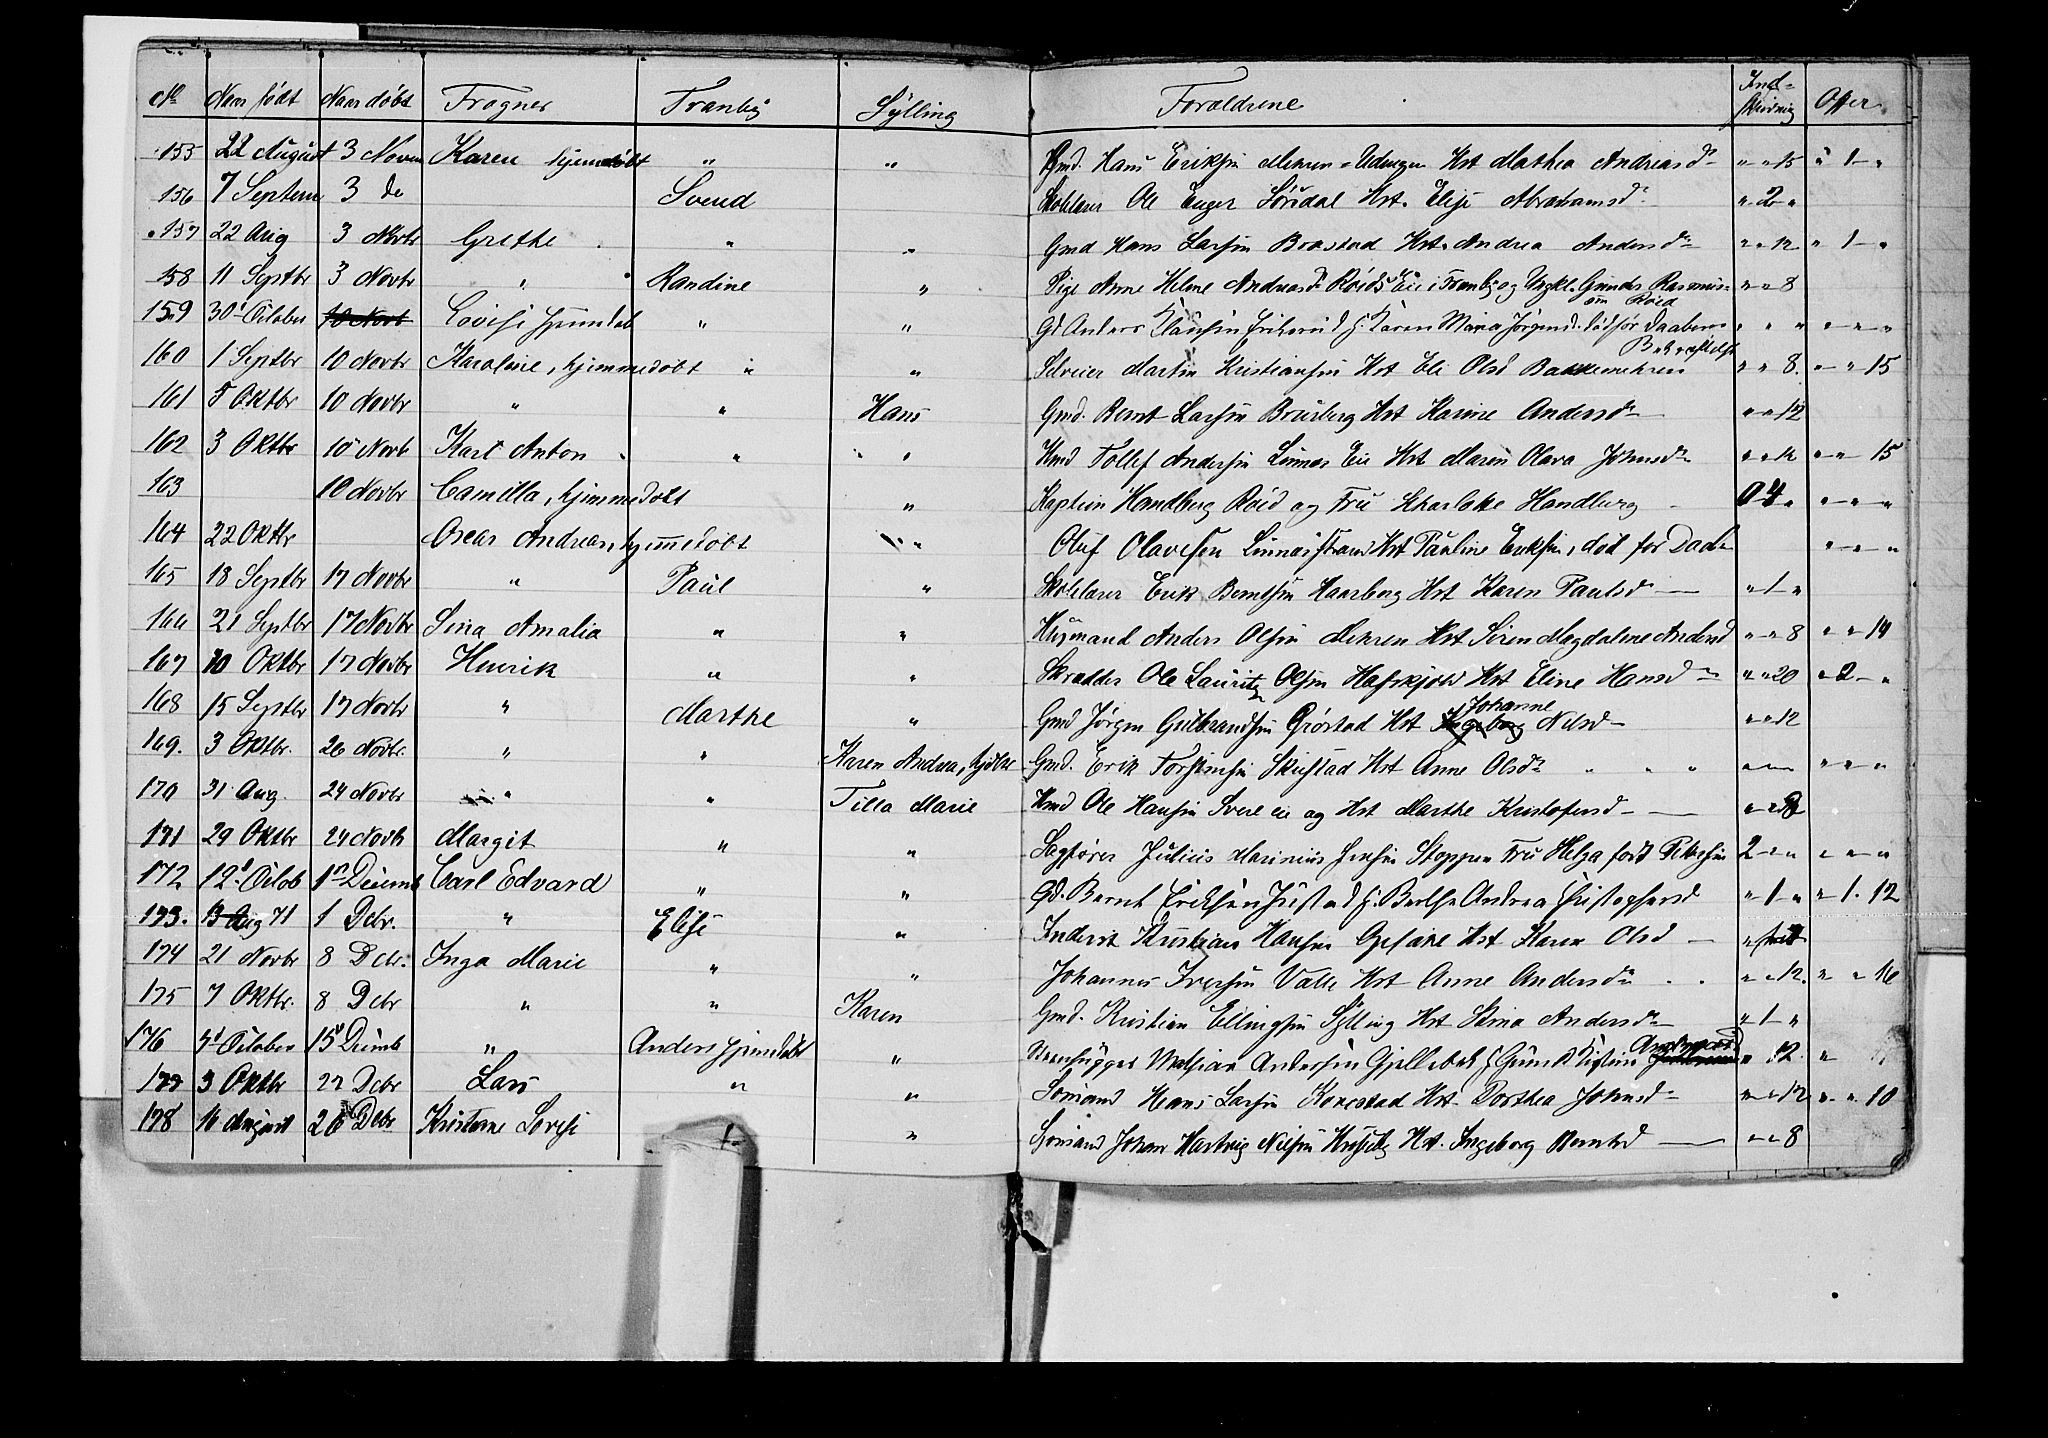 No Naar født Naar døbt Frogner Tranby Sylling Forældrene Ind- skrivning Offer
155 22 August 3 Novem Karen hjemdøbt " " Gmd. Hans Eriksen Mehren Hst Mathea Andreasd " " 15 " 1 "
156 7 Septem 3 do Svend Skolelærer Ole Enger Sørsdal Hst. Elise Abrahamsd " 2 "
157 22 Aug 3 Novbr Grethe " " Gmd Hans Larsen Brastad Hst. Andrea Andersd " " 12 " 1 "
158 11 Septbr 3 Novbr " Randine " Pige Anne Helene Andreasd Røids Eie i Tranby og Ungkl. Gunder Rasmus-
sen Røed " " 8
159 30 Octobr 10 Novb Lovise hjemdøb " " Gd Anders Klausen Eriksrud h. Karen Maria Jørgensd. død før Daabens
Bekræftelse " " " " " "
160 1 Septbr 10 Novbr Karoline, hjemmedøbt " " Martin Kristiansen Hst Eli Olsd Bakkemehren " " 8. " " 15
161 5 Oktbr 10 Novbr " " Hans Gmd. Bernt Larsen Hst Karine Andersd " " 12
162 3 Oktbr 10 Novb Karl Anton " " Hmd Tollef Andersen Linnes Eie Hst Maren Olava Johnsd " " 12 " " 15
163 10 Novbr Camilla, hjemmedøbt " Kaptein Handberg Røed og Fru Charlotte Handberg 0 4 " " " "
164 22 Oktbr Oscar Andreas, hjemmedøbt " Oluf Olavesen Linnesstrand Hst Pauline Eriksen, død før Daab " " "
165 18 Septbr 17 Novbr " Paul " Skolelærer Erik Berntsen Haarberg Hst Karen Paulsd " 1 "
166 21 Septbr 17 Novbr Sina Amalia " " Husmand Anders Olsen Mehren Hst Siren Magdalene Andersd " " 8 " " 14
167 10 Oktbr 17 Novbr Henrik " " Skrædder Ole Lauritz Olsen Hafskjold Hst Eline Hansd " " 20 " 2 "
168 15 Septbr 17 Novbr " Marthe " Gmd Jørgen Gulbrandsen Grøstad Hst Ingeborg Johanne Nelsd " " 12
169. 3 Oktbr. 26 Novbr. " " Karen Andrea, hjdbt Gmd. Erik Torstensen Skustad Hst Anne Olsd " " " " " "
170 31 Aug. 24 Novbr " " Tilla Marie Hmd Ole Hansen Svere eie og Hst Marthe Kristofersd " " 8
171 29 Oktbr 24 Novb Margit " " Sagfører Julius Marinius Jensen Stoppen Fru Helga født Petersen 2 " " " " "
172 12 Octob 1 Decemb Carl Edvard " " Gd. Bernt Eriksen Justad h. Berthe Andrea Christophersd " 1 " " 1. 12
173. 13 Aug 71 1 Debr. " Elise " Inderst Kristian Hansen Hst Karen Olsd "
174 21 Novbr 8 Debr. Inga Marie " " Johannes Iversen Valle Hst Anne Andersd " " 12. " " 16
175 7 Oktbr. 8 Debr " " Karen Gmd. Kristian Ellingsen Sylling Hst Stina Andersd " 1 "
176 4 Octobr 15 Decemb " Anders hjemdøbt " Steenhugger Mathias Andersen Gjellebek h. Gunild Kristine Andreasd " 12. "
177 3 Oktbr 22 Debr Lars " " Somand Hans Larsen Konestad Hst. Dorthea Johnsd " " 12 " " 10
178 16 August 26 Debr Kristine Lovise " Somand Johan Hartvig Nilsen Hst. Ingeborg Berntsd " " 8